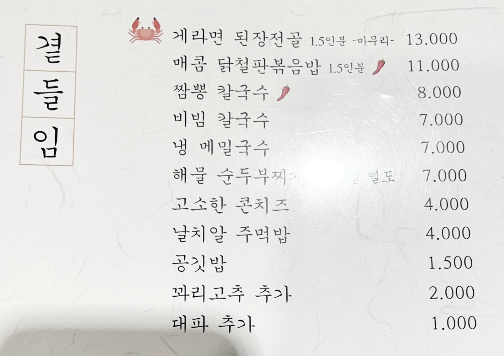 곁들임
게라면 된장전골 1.5인분 -마무리- 13.000
매콤 닭철판볶음밥 1.5인분 11.000
짬뽕 칼국수 8.000
비빔 칼국수 7.000
냉 메밀국수 7.000
해물 순두부찌개 별도 7.000
고소한 콘치즈 4.000
날치알 주먹밥 4.000
공깃밥 1.500
꽈리고추 추가 2.000
대파 추가 1.000